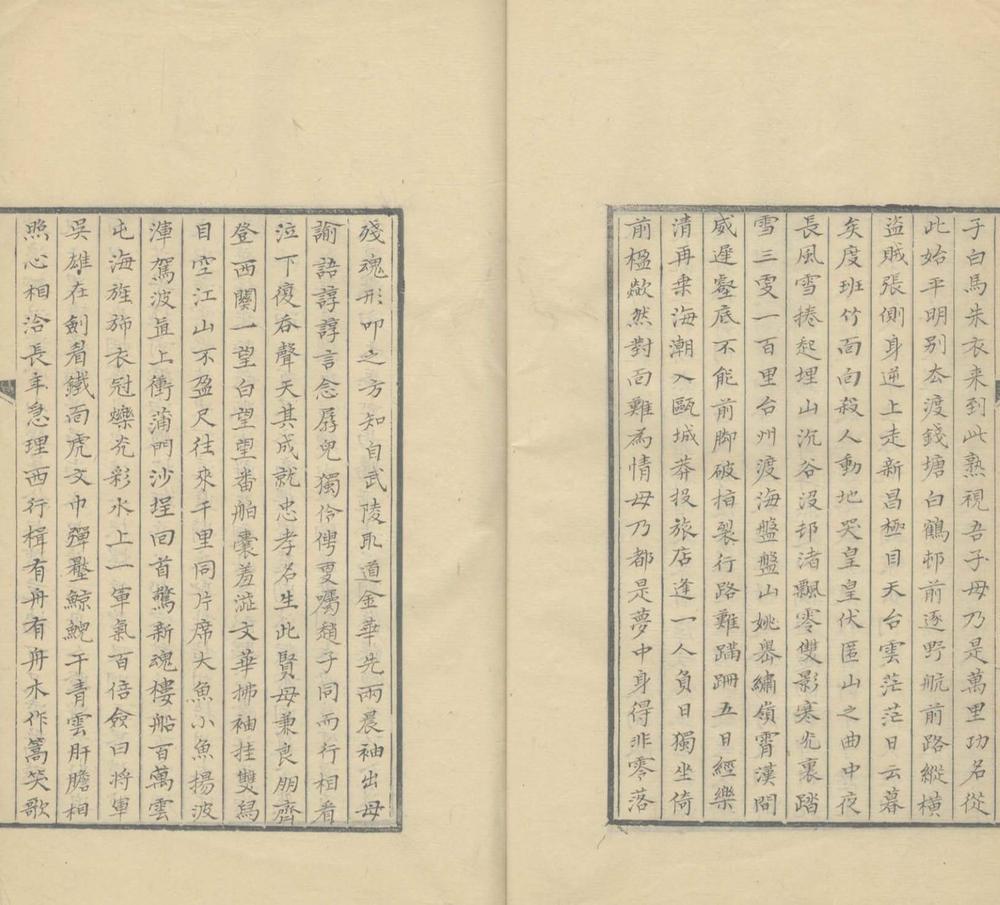 子白馬朱衣来到此熟視吾子母乃是萬里功名從
此始平明別厺渡錢塘白鶴邨前逐野航前路縱橫
盜賊張側身逆上走新昌極目天台雲茫茫日云暮
矣度班竹面向殺人動地哭皇皇伏匿山之曲中夜
長風雪捲起埋山沉谷沒邨渚飄零雙影寒光裏踏
雪三雯一百里台州渡海盤盤山姚嶴繡嶺霄漢間
威遲壑底不能前脚破指裂行路難蹣跚五日經樂
清再乗海潮入甌城莽投旅店逢一人負日獨坐倚
前楹歘然對面難為情毋乃都是夢中身得非零落
殘魂形叩之方知自武陵取道金華先兩晨袖出母
諭語諄諄言念孱兒獨伶俜更囑趙子同而行相看
泣下復吞聲天其成就忠孝名生此賢母兼良朋齊
登西關一望白望望番舶橐羞澁文華拂袖挂雙舄
目空江山不盈尺往來千里同片席大魚小魚揚波
渾駕波直上衝蒲門沙埕回首驚新魂樓船百萬雲
屯海旌斾衣冠爍光彩水上一軍氣百倍僉曰將軍
吳雄在劍看鐵面虎文巾彈壓鯨鯢干青雲肝膽相
照心相洽長年急理西行楫有舟有舟水作篙笑歌